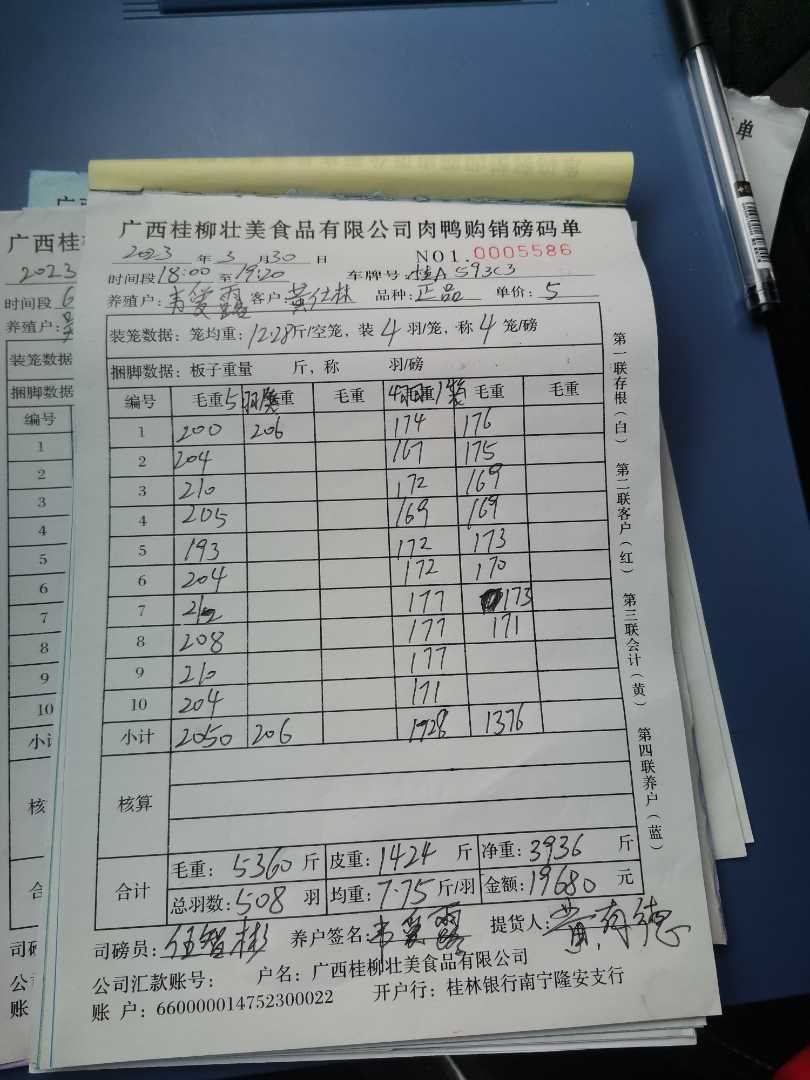 广西桂柳壮美食品有限公司肉鸭购销磅码单
2023 年 3 月 30 日 NO1.0005586
时间段 18:00 至 19:20 车牌号: 桂A593C3
养殖户: 韦爱露 客户 黄仕林 品种: 正品 单价: 5
装笼数据: 笼均重: 12.28 斤/空笼, 装 4 羽/笼, 称 4 笼/磅
捆脚数据: 板子重量 斤, 称 羽/磅
编号 毛重 5羽/笼 毛重 毛重 4羽/笼 毛重 毛重
1 200 206 174 176
2 204 167 175
3 210 172 169
4 205 169 169
5 193 172 173
6 204 172 170
7 212 177 173
8 208 177 171
9 210 177
10 204 171
小计 2050 206 1728 1376
核算
合计 毛重: 5360 斤 皮重: 1424 斤 净重: 3936 斤
总羽数: 508 羽 均重: 7.75 斤/羽 金额: 19680 元
司磅员: 伍智彬 养户签名: 韦爱露 提货人:
公司汇款账号: 户名: 广西桂柳壮美食品有限公司
账 户: 660000014752300022 开户行: 桂林银行南宁隆安支行
第一联存根(白) 第二联客户(红) 第三联会计(黄) 第四联养户(蓝)
广西桂
2023
时间段 6
养殖户:
装笼数据
捆脚数据
编号
1
2
3
4
5
6
7
8
9
10
小计
核
合
司磅
公
账
单